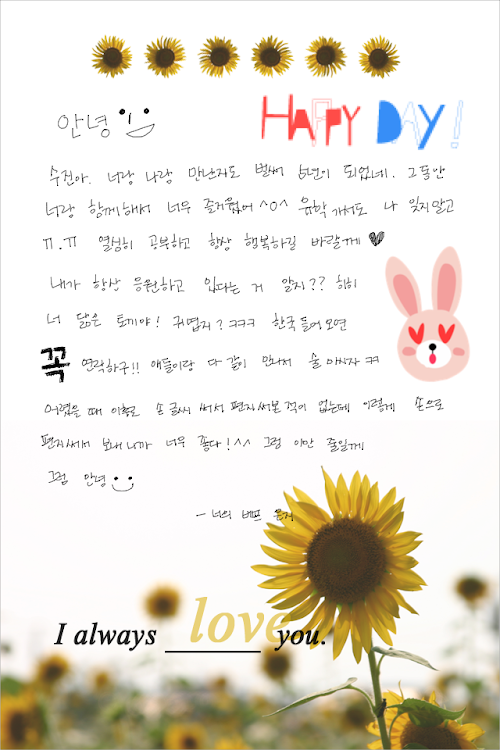 안녕
HAPPY DAY!
수진아. 너랑 나랑 만난지도 벌써 6년이 되었네. 그동안
너랑 함께해서 너무 즐거웠어 ^0^ 유학 가서도 나 잊지말고
ㅠ.ㅠ 열심히 공부하고 항상 행복하길 바랄께
내가 항상 응원하고 있다는 거 알지?? 히히
너 닮은 토끼야! 귀엽지? ㅋㅋㅋ 한국 들어오면
꼭 연락하구!! 애들이랑 다 같이 만나서 술 마시자 ㅋㅋ
어렸을 때 이후로 손글씨 써서 편지써본 적이 없는데 이렇게 손으로
편지써서 보내니까 너무 좋다! ^^ 그럼 이만 줄일게
그럼 안녕
- 너의 베프 은지
I always love you.